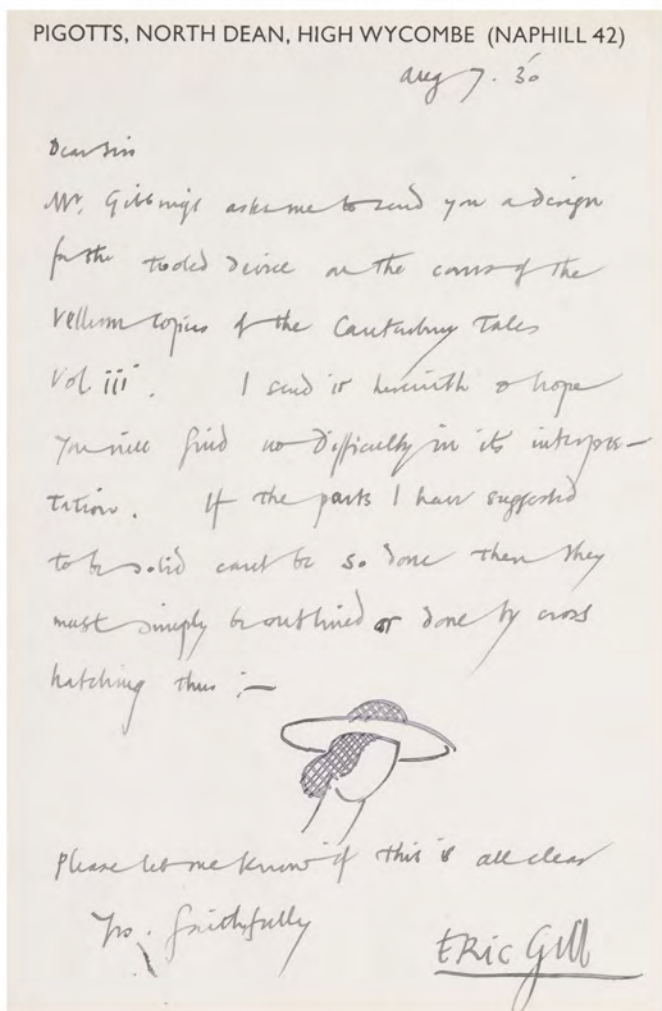 PIGOTTS, NORTH DEAN, HIGH WYCOMBE (NAPHILL 42)
Aug 7. 30
Dear Sirs
Mr. Gibbings asks me to send you a design
for the tooled device on the covers of the
vellum copies of the Canterbury Tales
Vol. iii. I send it herewith & hope
you will find no difficulty in its interpre-
tation. If the parts I have suggested
to be solid can't be so done then they
must simply be outlined or done by cross
hatching thus :—
Please let me know if this is all clear
Yrs. faithfully
ERIC Gill